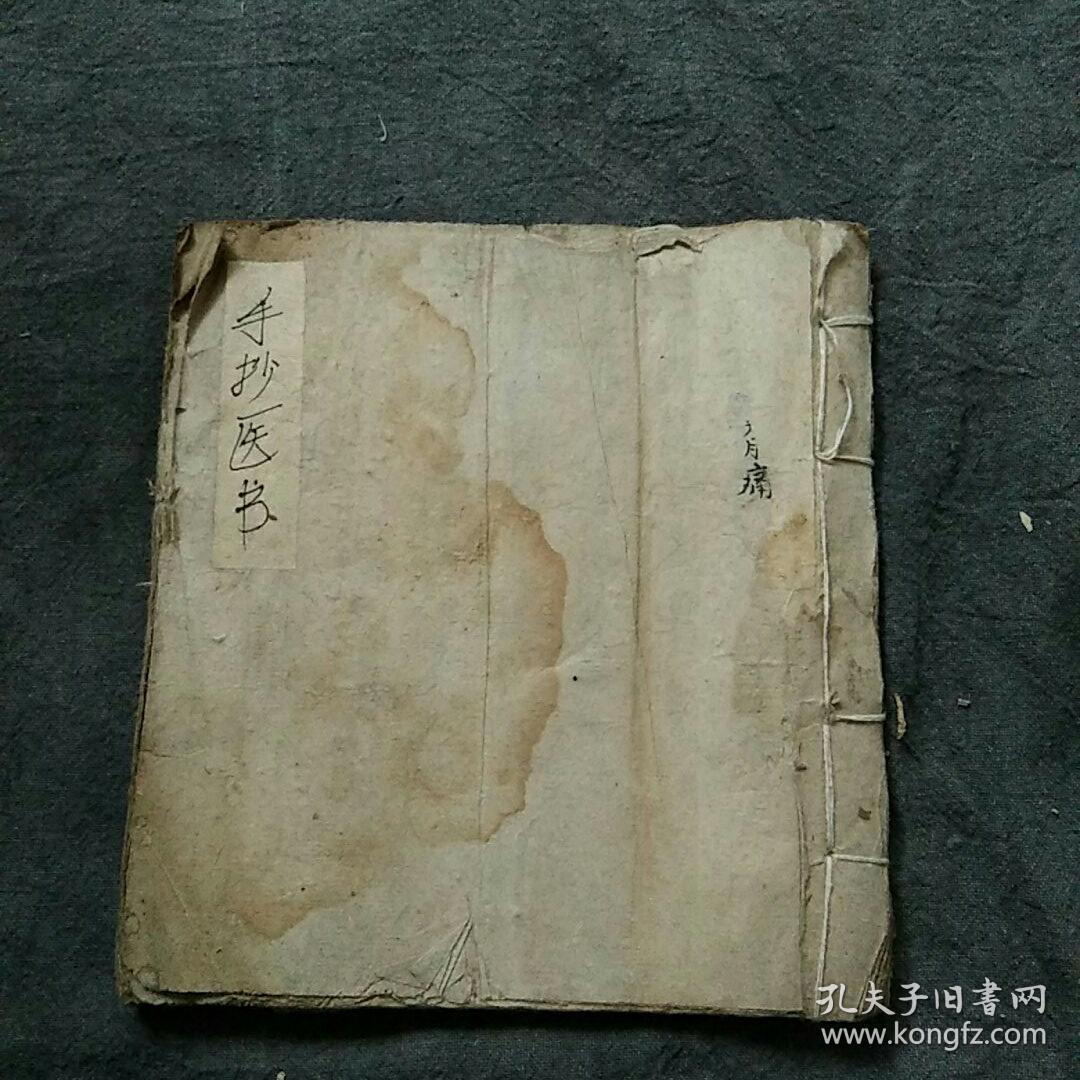 手抄医书
痛
孔夫子旧書网
www.kongfz.com